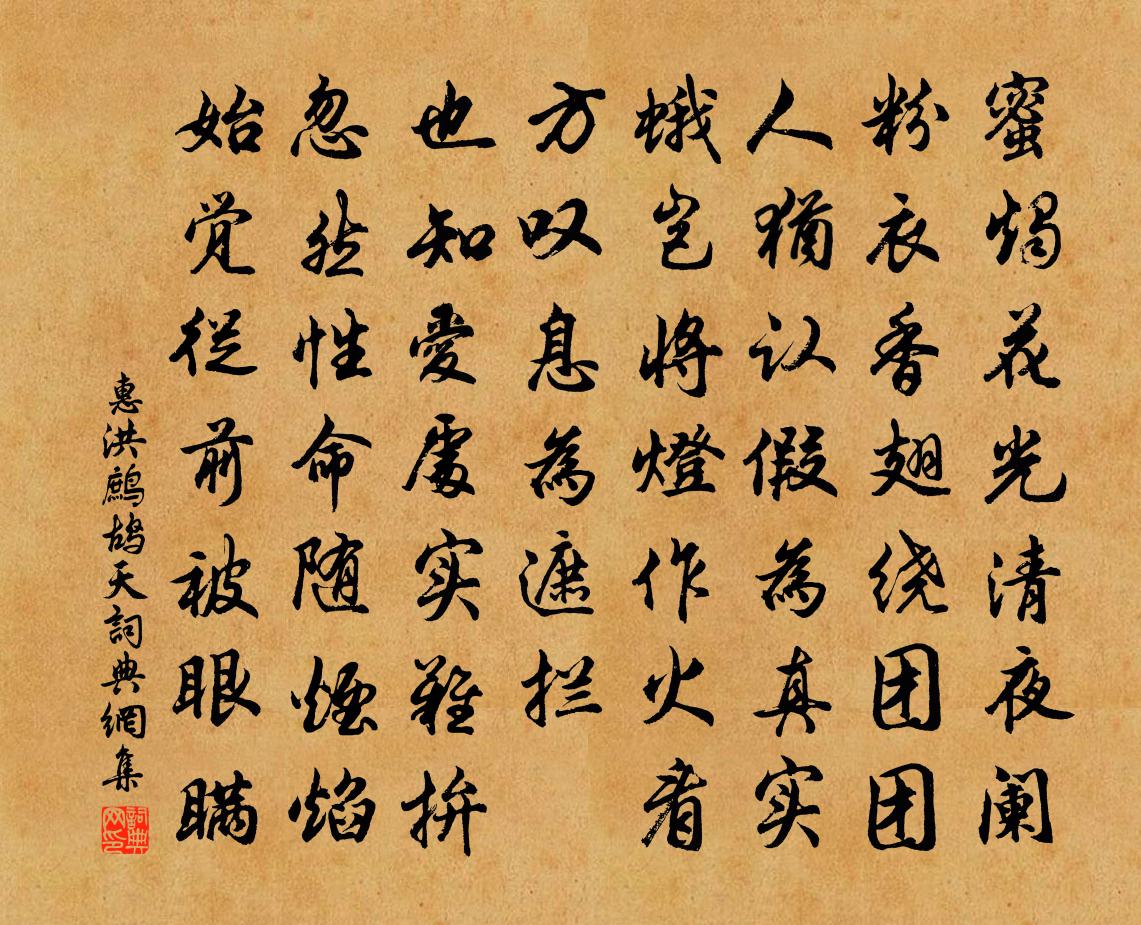 蜜烛花光清夜阑
粉衣香翅绕团团
人犹认假为真实
蛾岂将燈作火看
方叹息为遮拦
也知愛處实難拚
忽然性命随煙焰
始觉從前被眼瞒
惠洪鷓鴣天詞典網集
詞典网印